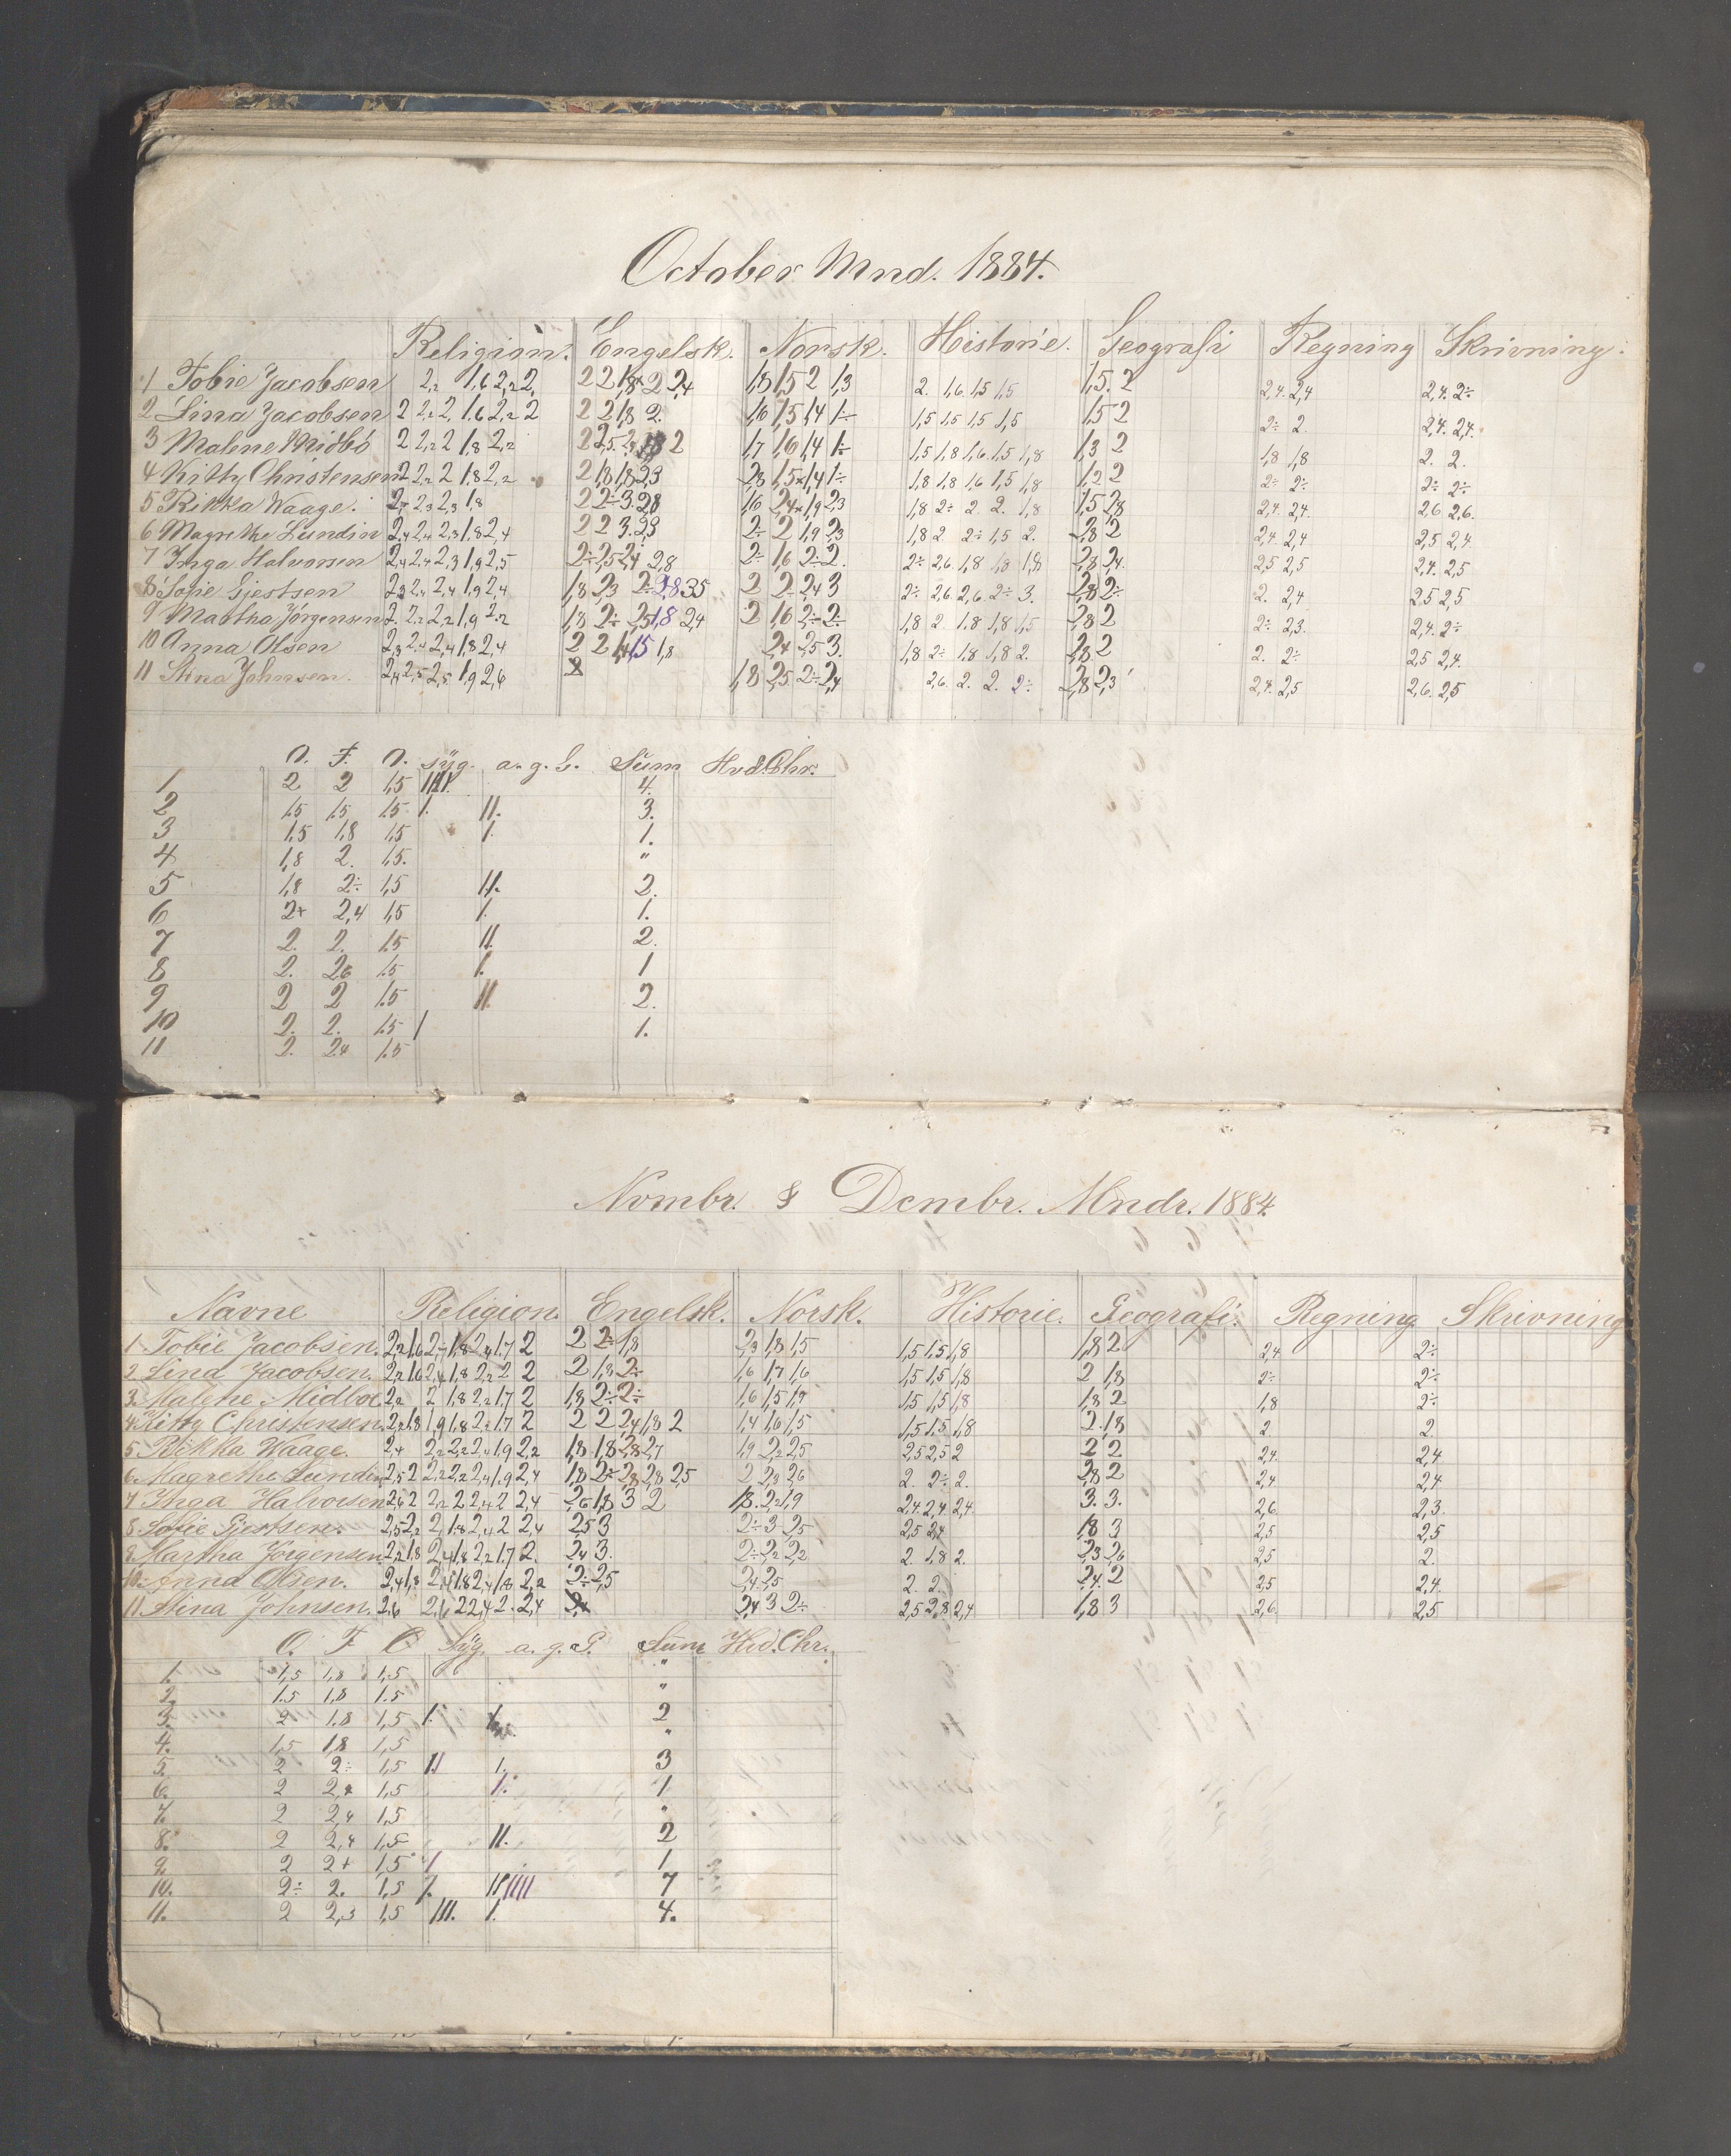 October Mnd. 1884.
Religion. Engelsk. Norsk. Historie. Geografi Regning Skrivning.
1 Tobie Jacobsen 2,2 1,6 2,2 2, 2 2 1,8 2 2,4 1,8 1,5 2 1,3 2. 1,6 1,5 1,5 1,5. 2 2,4. 2,4 2,4. 2÷
2 Lina Jacobsen 2 2,2 2 1,6 2,2 2 2 2 1,8 2. 1,6 1,5 1,4 1÷ 1,5 1,5 1,5 1,5 1,5 2 2÷ 2. 2,4. 2,4.
3 Malene Midbö 2 2,2 2 1,8 2,2 1,7 1,6 1,4 1÷ 1,5 1,8 1,6 1,5 1,8 1,3 2 1,8 1,8 2. 2.
4 Kitty Christensen 2 2,2 2 1,8 2,2 2 1,8 1,8 2,3 2,8 1,5 1,4 1÷ 1,8 1,8 1,6 1,5 1,8 1,2 2 2÷ 2÷ 2÷ 2÷
5 Rikka Waage. 2,3 2,3 1,8 2 2÷ 3. 2,8 1,6 2,4 1,9 2,3 1,8 2÷ 2. 2. 1,8 1,5 2,8 2,4. 2,4. 2,6 2,6.
6 Magrethe Lundin 2,4 2,4 2,3 1,8 2,4 2 2 3. 2,3 2÷ 2 1,9 2,3 1,8 2 2÷ 1,5 2. 2,8 2 2,4 2,4 2,5 2,4
7 Inga Halvorsen 2,4 2,4 2,3 1,9 2,5 2÷ 2,5 2,4 2,8 2÷ 1,6 2÷ 2. 2÷ 2,6. 1,8 1,8 1,8 2,8 2,4. 2,5 2,5 2,4. 2,5
8 Sofie Gjestsen 2,3 2,4 2,4 1,9 2,4 1,8 2,3 2÷ 2,8 3,5 2 2 2,4 3 2÷ 2,6 2,6. 2÷ 3. 2,8 2÷ 2. 2,4 2,5 2,5
9 Martha Jörgensen 2. 2,2 2,2 1,9 2,2 1,8 2÷ 2,5 1,8 2,4 2 1,6 2÷ 2÷ 1,8 2. 1,8 1,8 1,5 2,8 2 2÷ 2,3. 2,4. 2÷
10 Anna Olsen 2,3 2,4 2,4 1,8 2,4 2 2 1,4 1,5 1,8 2,4 2,5 3. 1,8 2÷ 1,8 1,8 2. 2,8 2 2. 2÷ 2,5 2,4.
11 Stina Johnsen. 2,4 2,5 2,5 1,9 2,6 1,8 2,5 2÷ 2,4 2,6. 2. 2. 2÷ 2,8 2,3 2,4. 2,5 2,6. 2,5
O. F. O. syg. a. g. G. Sum Hvd. Chr.
1 2 2 1,5 4.
2 1,5 1,5 1,5 1. 11. 3.
3 1,5 1,8 1,5 1. 1.
4 1,8 2. 1,5. "
5 1,8 2÷ 1,5 11. 2.
6 2+ 2,4 1,5 1. 1.
7 2. 2. 1,5 11. 2.
8 2. 2,6 1,5 1. 1
9 2 2 1,5 11. 2.
10 2. 2. 1,5 1 1.
11 2. 2,4 1,5
Nvmbr. & Dcmbr. Mndr. 1884.
Navne Religion. Engelsk. Norsk. Historie. Geografi. Regning Skrivning
1. Tobie Jacobsen. 2 2÷ 1,8 2,3 1,8 1,5 1,5 1,5 1,8 1,8 2 2,4 2÷
2. Lina Jacobsen. 2,2 1,6 2,4 1,8 2,2 2 2 2 1,8 2÷ 1,6 1,7 1,6 1,5 1,5 1,8 2 1,8 2÷ 2÷
3. Malene Midböe 2,2 2 1,8 2,2 1,7 2 1,8 2÷ 2÷ 1,6 1,5 1,9 1,5 1,5 1,8 1,8 2 1,8 2÷
4. Kitty Christensen. 2,2 1,8 1,9 1,8 2,2 1,7 2 2 2 2,4 1,8 2 1,4 1,6 1,5 1,5 1,5 1,8 2 1,8 2. 2.
5. Rikka Waage. 2,4 2,2 2,2 2,4 1,9 2,2 1,8 1,8 2,8 2,7 1,9 2,2 2,5 2,5 2,5 2 2 2 2,4. 2,4
6. Magrethe Lundin 2,5 2 2,2 2,2 2,4 1,9 2,4 1,8 2÷ 2,8 2,8 2,5 2 2,3 2,6 2. 2÷ 2. 2,8 2 2,4 2,4
7 Inga Halvorsen 2,6 2 2,2 2 2,4 2 2,4 2,6 1,8 3 2 1,8. 2,2 1,9 2,4. 2,4. 2,4. 3. 3. 2,6. 2,3.
8. Sofie Gjestsen. 2,5 2,2 2, 1,8 2,4 2 2,4 2,5 3 2÷ 3 2,5 2,5 2,4 1,8 3 2,5 2,5
9. Martha Jörgensen 2,2 1,8 2,4 1,8 2,2 1,7 2. 2,4 3. 2÷ 2,2 2,2 2. 1,8 2. 2,3 2,6 2,5 2.
10. Anna Olsen. 2,4 1,8 2,4 1,8 2,4 1,8 2,2 2÷ 2,5 2,4 2,5 2. 2. 2,4. 2 2,5 2,4.
11 Stina Johnsen. 2,6 2,6 2 2,4 2. 2,4 2,4 3 2÷ 2,5 2,8 2,4 1,8 3 2,6. 2,5
O. F. O Syg. a. g. G. Sum Hvd. Chr.
1. 1,5 1,8 1,5 "
2. 1,5 1,8 1,5 "
3. 2 1,8 1,5 1. 2
4. 1,5 1,8 1,5 "
5. 2 2÷ 1,5 11 1. 3
6. 2 2,4 1,5 1. 1
7. 2 2,4 1,5 "
8. 2 2,4 1,5 11. 2
9. 2 2+ 1,5 1 1
10. 2÷ 2. 1,5 1. 111111 7
11. 2 2,3 1,5 111. 1. 4.